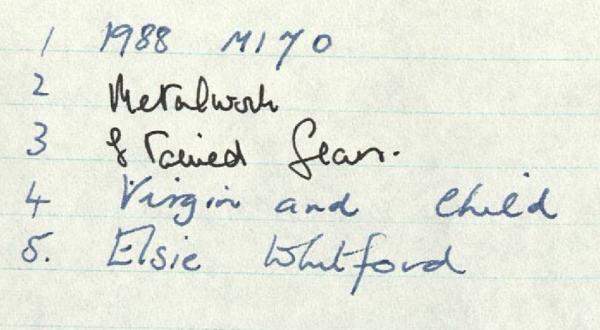 1 1988 M170
2 Metalwork
3 Stained Glass.
4 Virgin and Child
5. Elsie Whitford